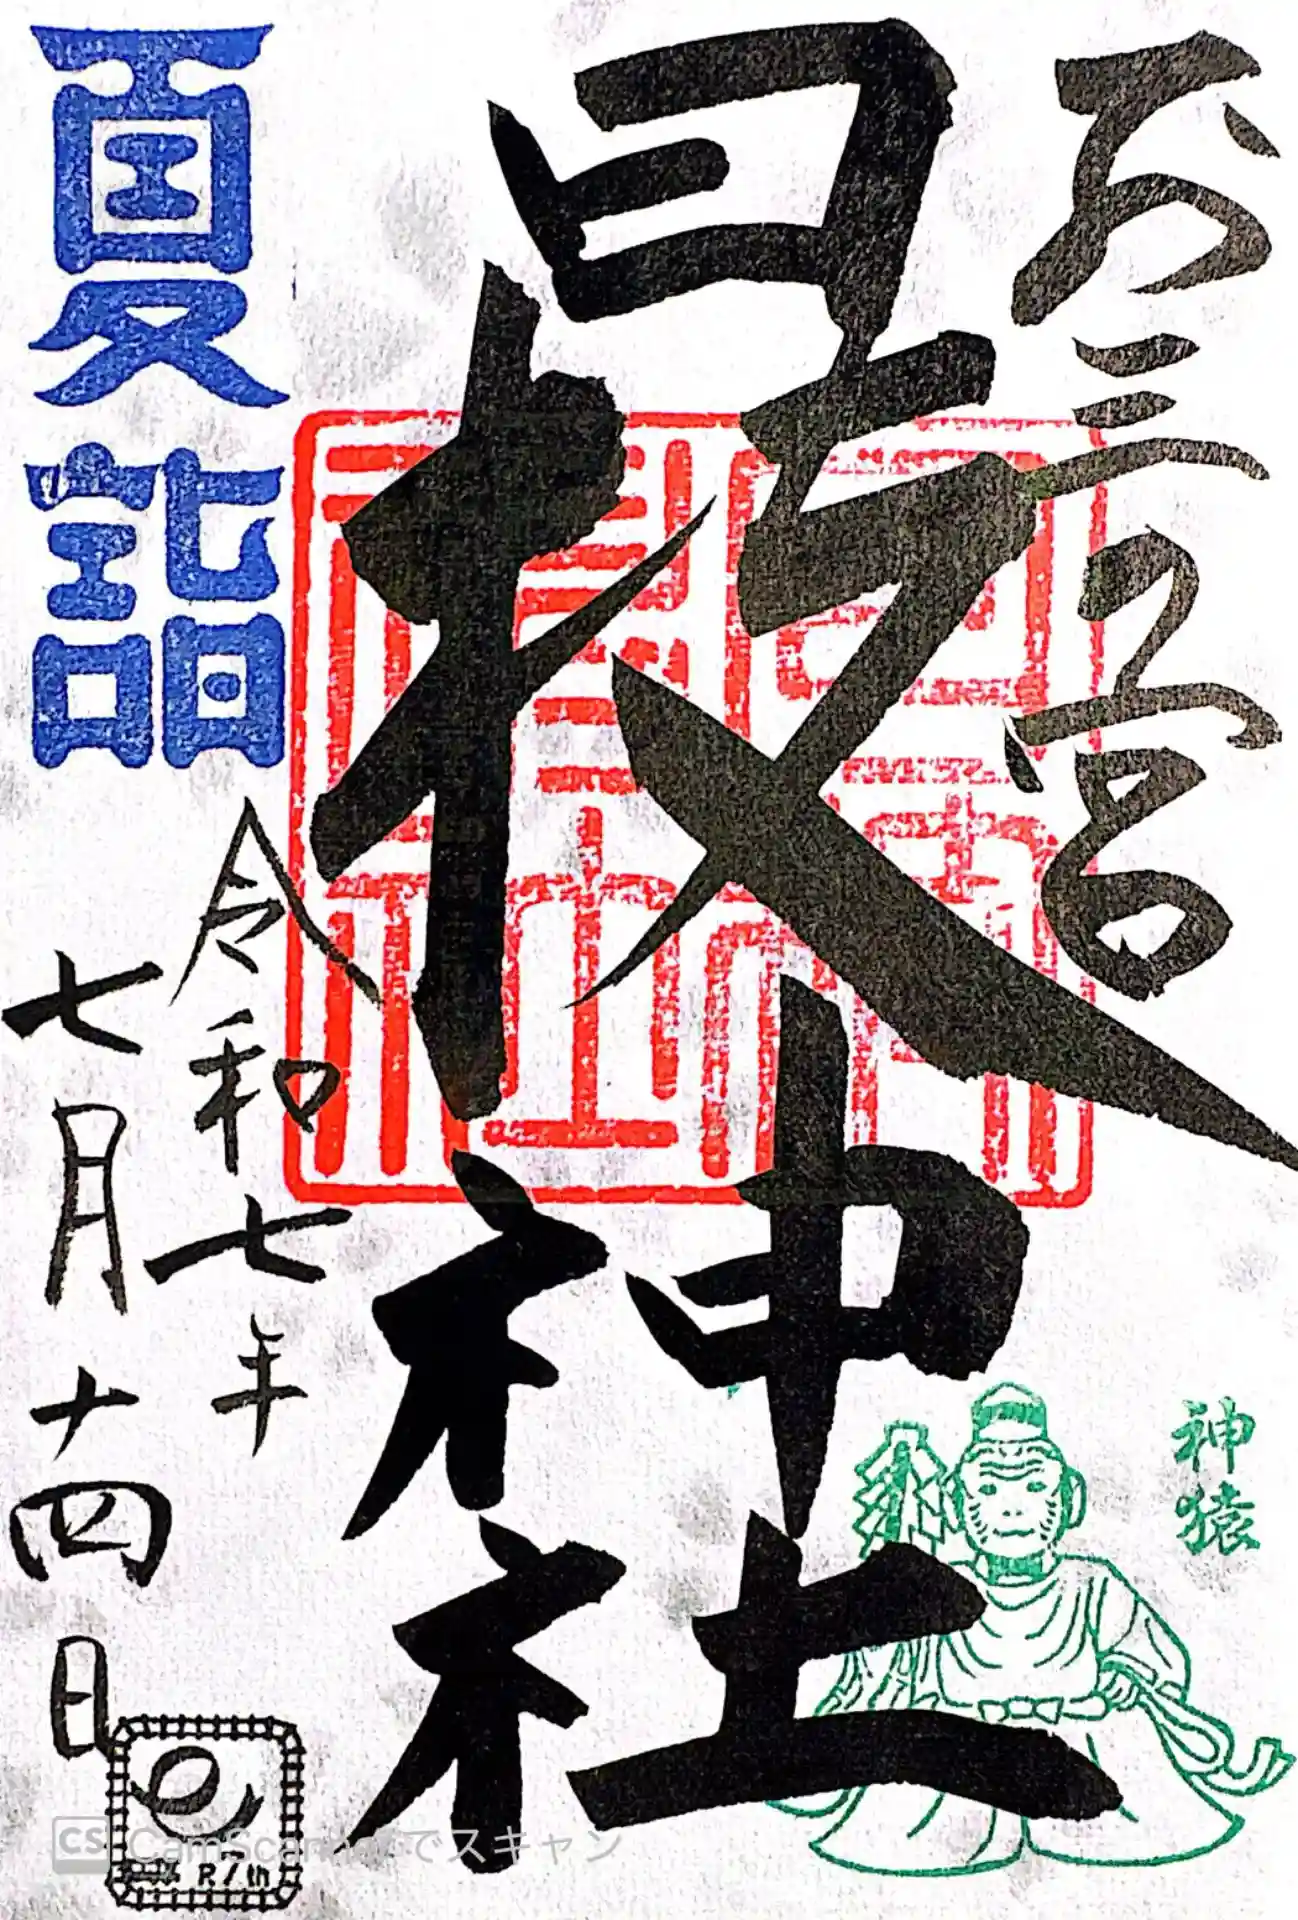 お三之宮
日枝神社
夏詣
令和七年
七月十四日
神猿
CS CamScannerでスキャン